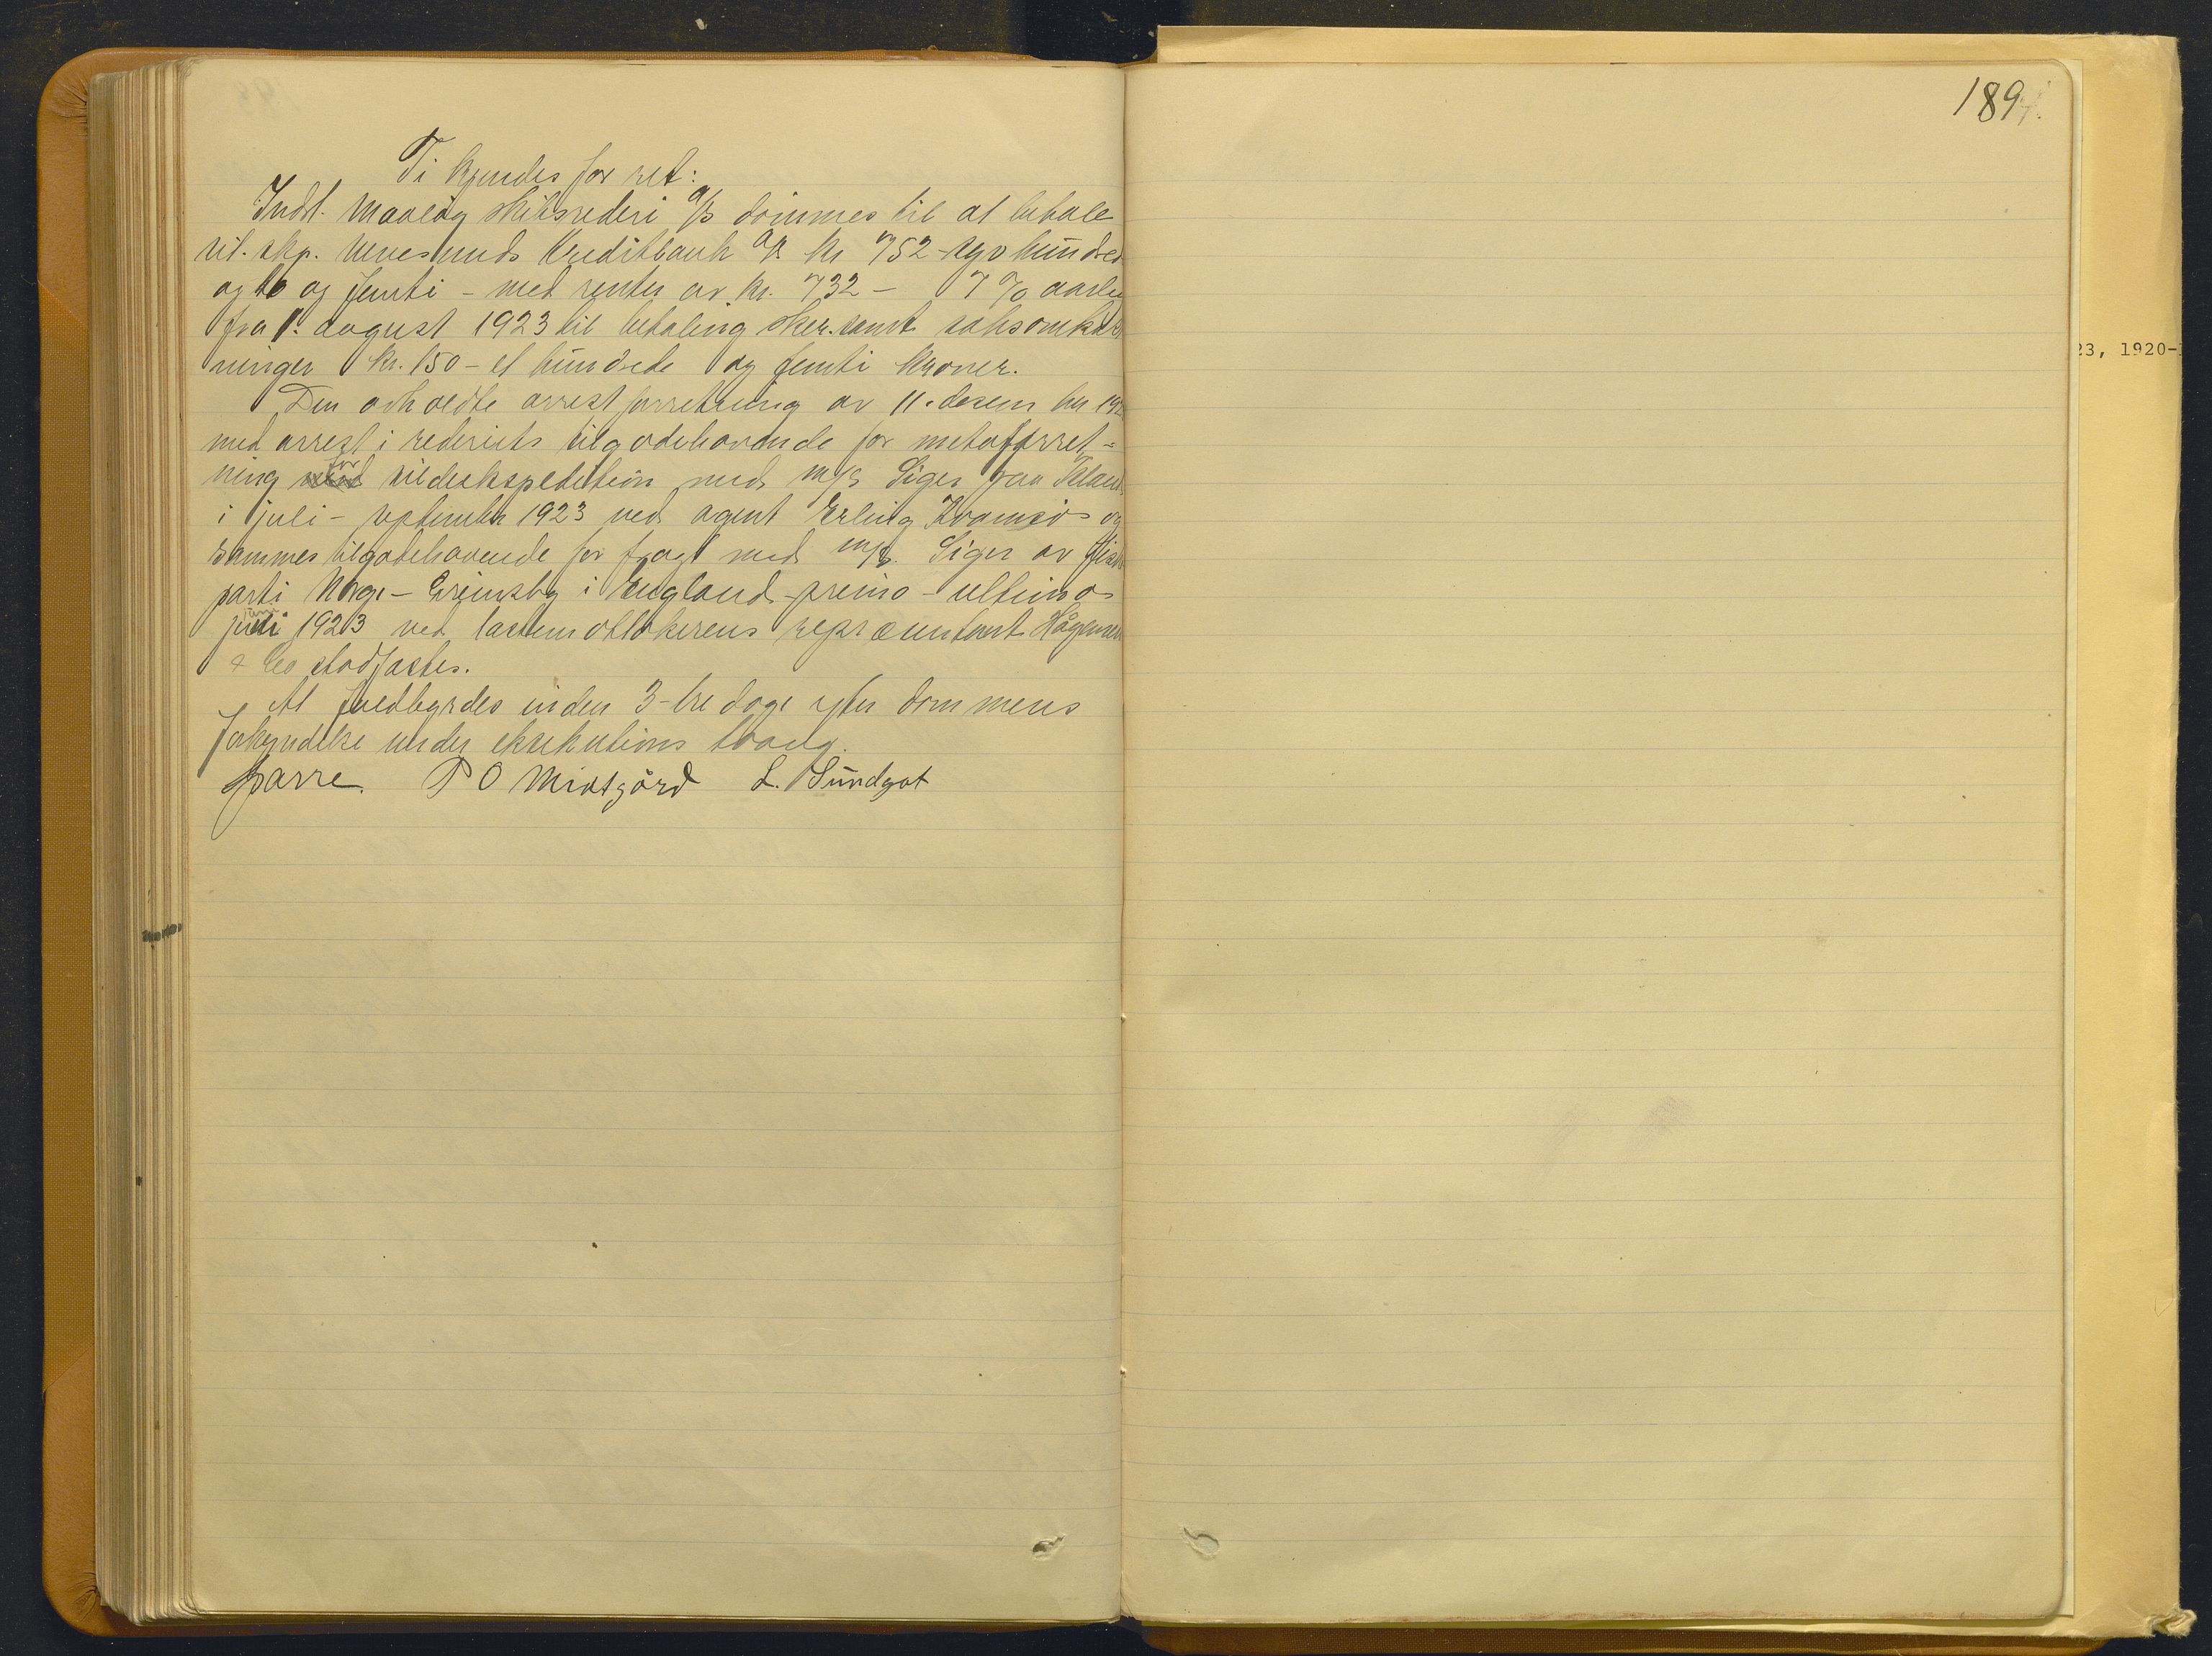 189
Ti kjendes for ret:
Indst. Maaløy skibsrederi A/S dømmes til at betale
cit. skp. Kreditbank A/S kr 752 - syv hundred
og to og femti - med renter av kr. 732 - 7 % aarlig
fra 1. august 1923 til betaling sker. samt saksomkost
ninger kr. 150 - et hundrede og femti kroner.
Den avholdte arrestforretning av 11. desember 192
med arrest i rederiets tilgodehavende for
ning for sildekspedition med m/s Siger paa Island
i juli - september 1923 ved agent Erling Kvamsø og
sammes tilgodehavende for fragt med m/s. Siger av fiske
parti Norge - Grimsby i England - primo - ultimo
juni 1923 ved lastemottakerens repræsentant Hågensen
& Co stadfæstes.
At fuldbyrdes inden 3 - tre dage efter dommens
forkyndelse under eksekutions tvang.
Sparre. P O Midtgård L. Sundgot
23, 1920-